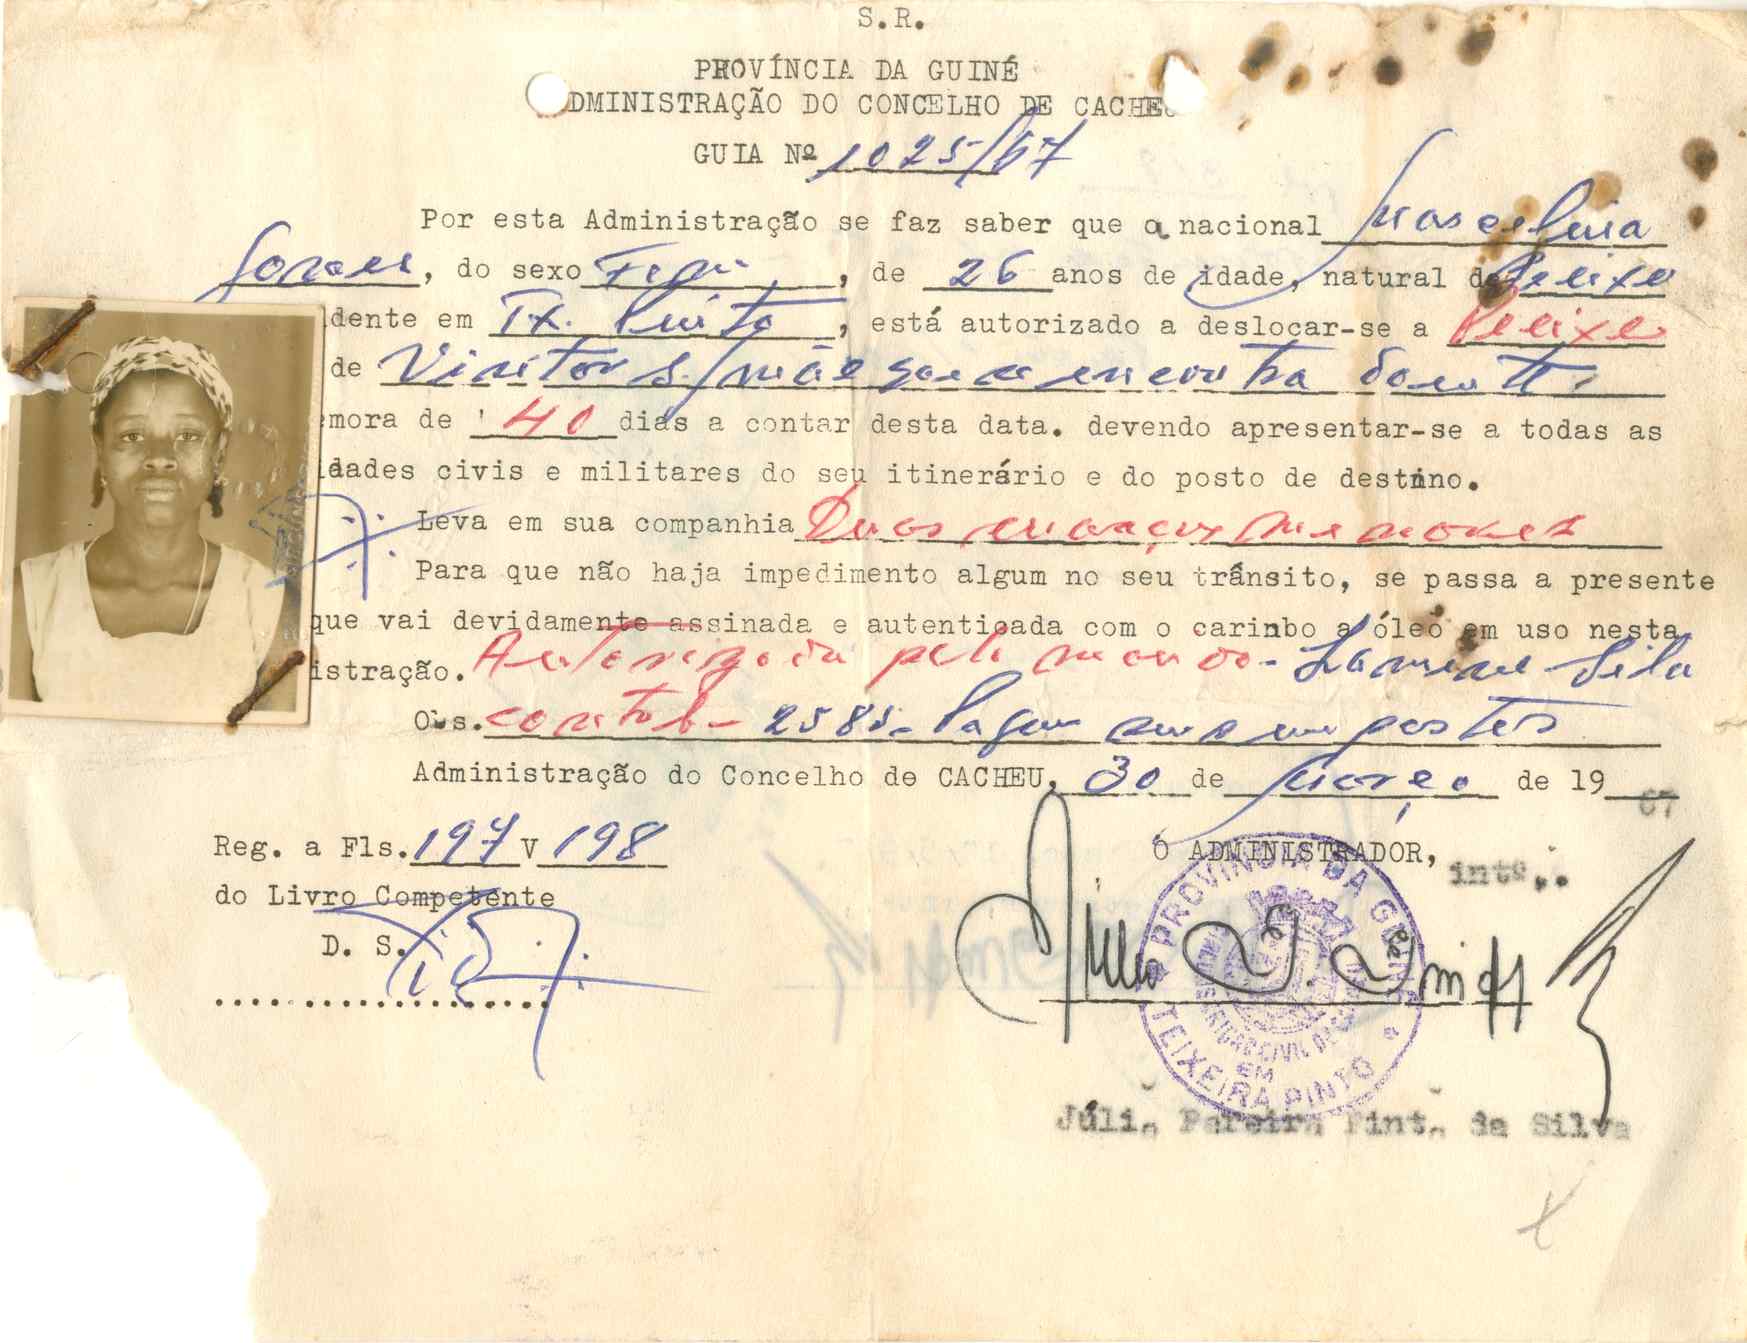 S.R.
PROVÍNCIA DA GUINÉ
DMINISTRAÇÃO DO CONCELHO DE CACHEU
GUIA Nº 1025/67
Por esta Administração se faz saber que a nacional
Gomes, do sexo Fem, de 26 anos de idade, natural de Pelixe
dente em Tx. Pinto, está autorizado a deslocar-se a Pelixe
de Visitar s/ mãe que se encontra doente
mora de 40 dias a contar desta data. devendo apresentar-se a todas as
idades civis e militares do seu itinerário e do posto de destino.
Leva em sua companhia Duas crianças menores
Para que não haja impedimento algum no seu trânsito, se passa a presente
que vai devidamente assinada e autenticada com o carinbo a óleo em uso nesta
istração. Autorizada pelo marido - Lamine
Obs. 2585. Pagou seus impostos
Administração do Concelho de CACHEU, 30 de Março de 1967
Reg. a Fls. 197 V 198
do Livro Competente
D. S.
O ADMINISTRADOR, intº..
PROVÍNCIA DA GUINÉ
EM
TEIXEIRA PINTO
Júlio Pereira Pinto da Silva